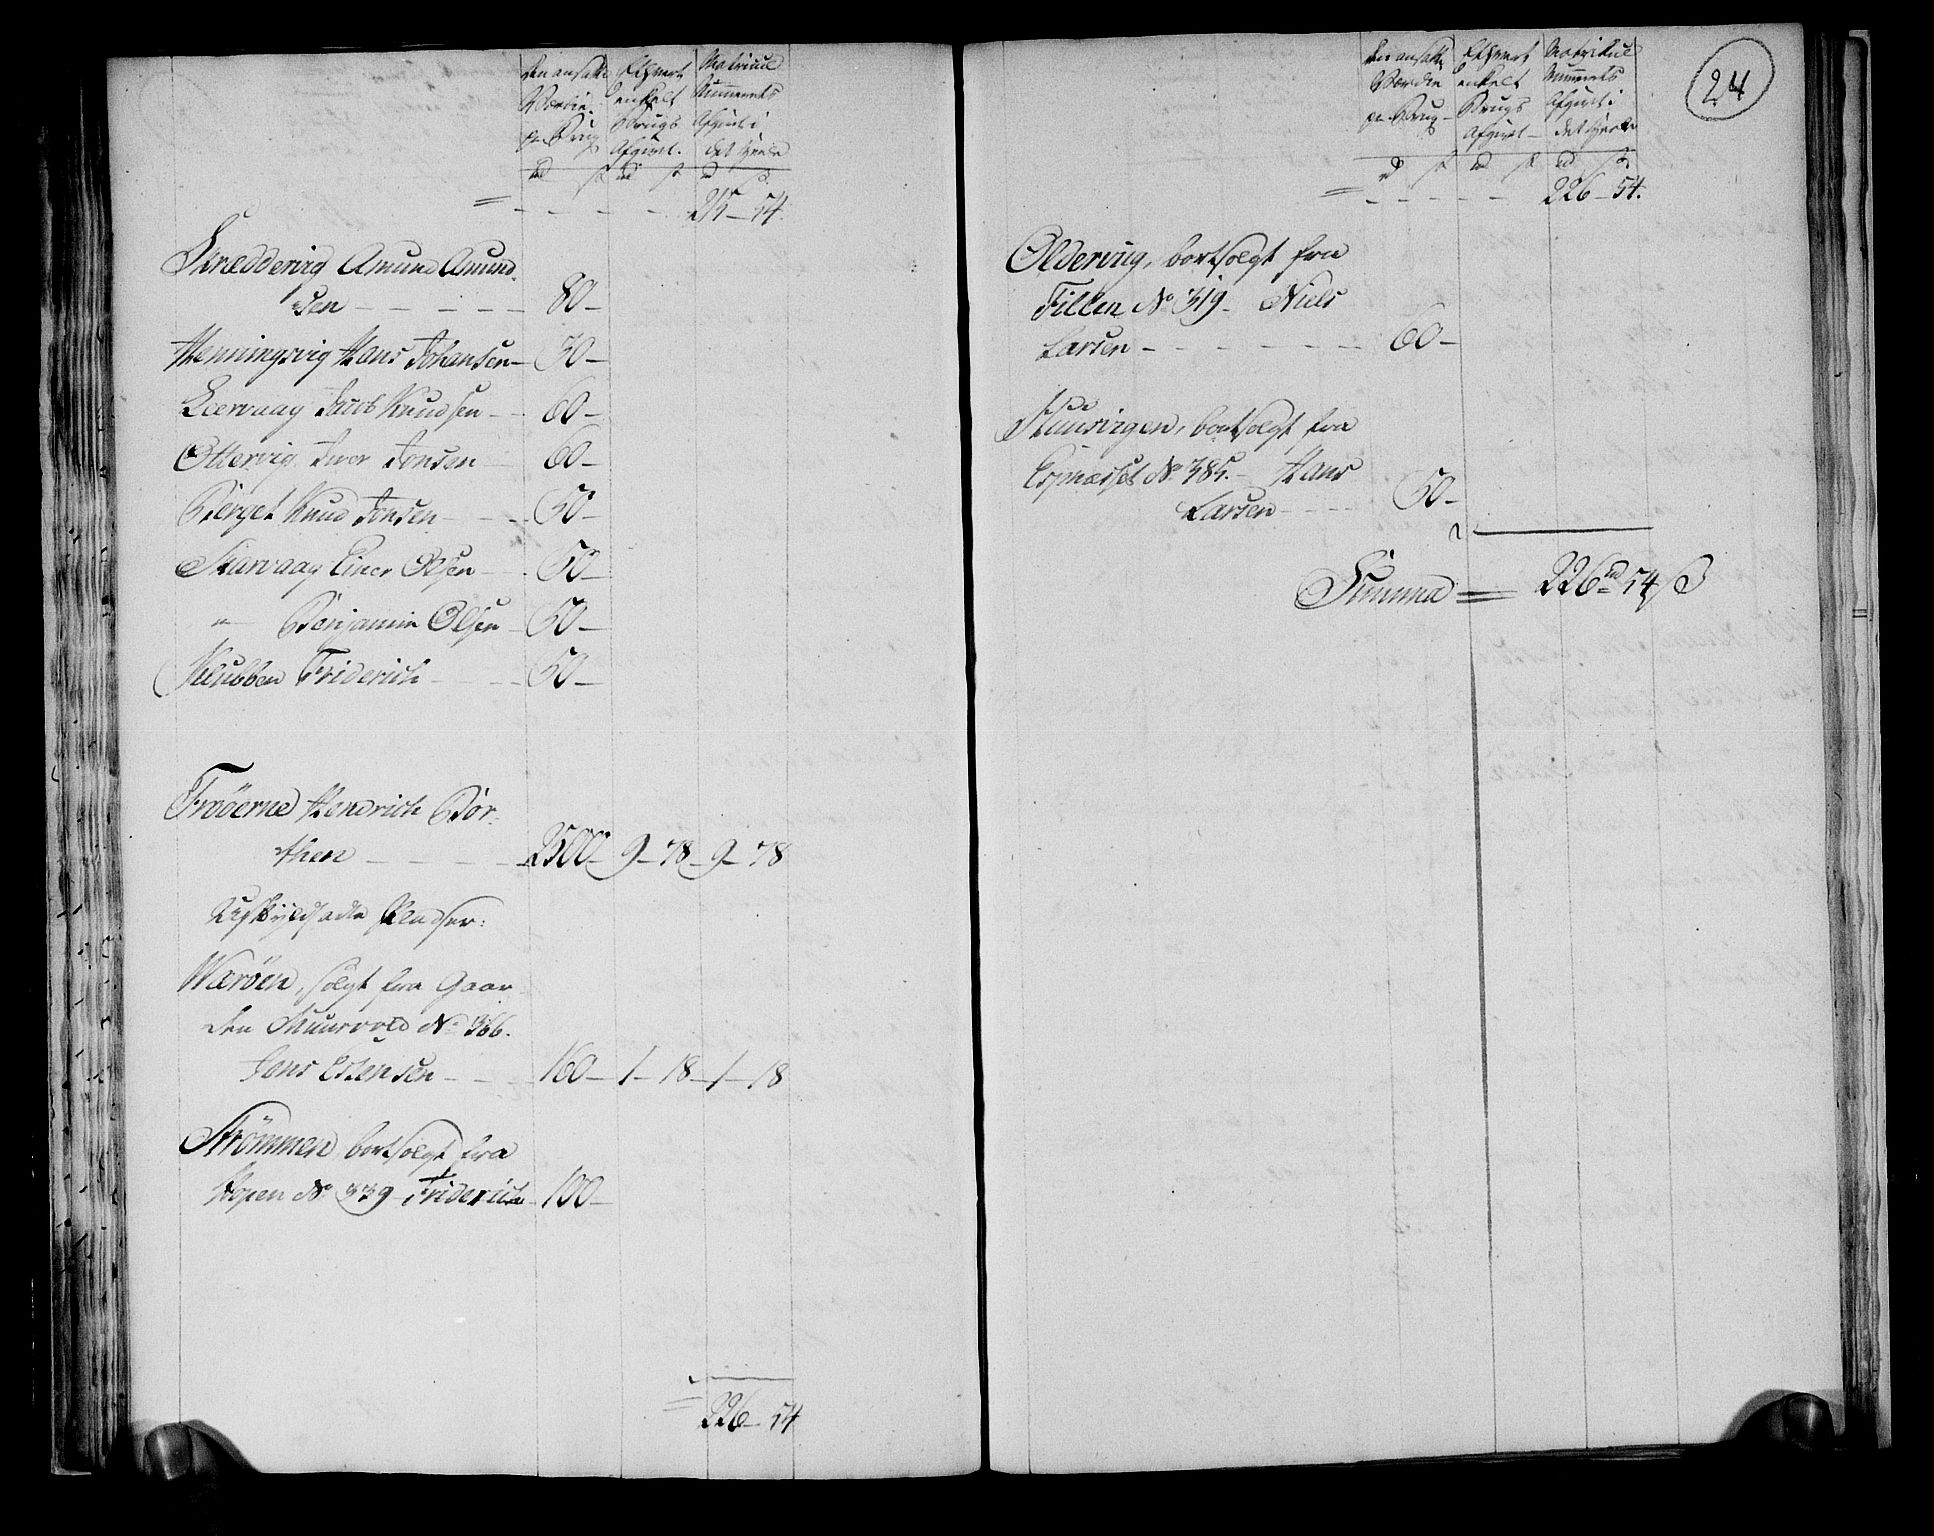 Den ansatte
Værdie
pr. Brug
Ethvert
enkelt
Brugs
Afgivt.
Matricul
Nummerets
Afgivt i
det Heele
rd s rd s rd s
= - - - - 215 - 54.
Skræddervig Amund Amund-
sen - - - - - 80 -
Henningsvig Hans Johansen - 30 -
Leervaag Jacob Knudsen - - 60 -
Ottervig Iver Jonsen - 60 -
Berget Knud Jonsen - - - 50 -
Skarvaag Einer Olsen - - 50 -
" Benjamin Olsen - 50 -
Klubben Friderich - - - 50 -
Froöerne Hendrich Bør-
then - - - - - 2500 - 9 - 78 - 9 - 78
Uskyldsatte Pladser:
Wæröen, solgt fra Gaar-
den Skuurvold No 366.
Jens Estensen - - - 160 - 1 - 18 - 1 - 18
Strömmen bortsolgt fra
Hopen No 339 Friderich - 100 -
= 226 - 54
24
Den ansatte
Værdie
pr. Brug
Ethvert
enkelt
Brugs
Afgivt
Matricul
Nummerets
Afgivt i
det Heele
rd s rd s rd s
= - - - - - 226 - 54.
Oldervig, bortsolgt fra
Fillen No 319 - Niels
Larsen - - - - - - 60 -
bortsolgt fra
Espnæsset No 385. - Hans
Larsen - - - - 50 -
Summa = 226 rd 54 s